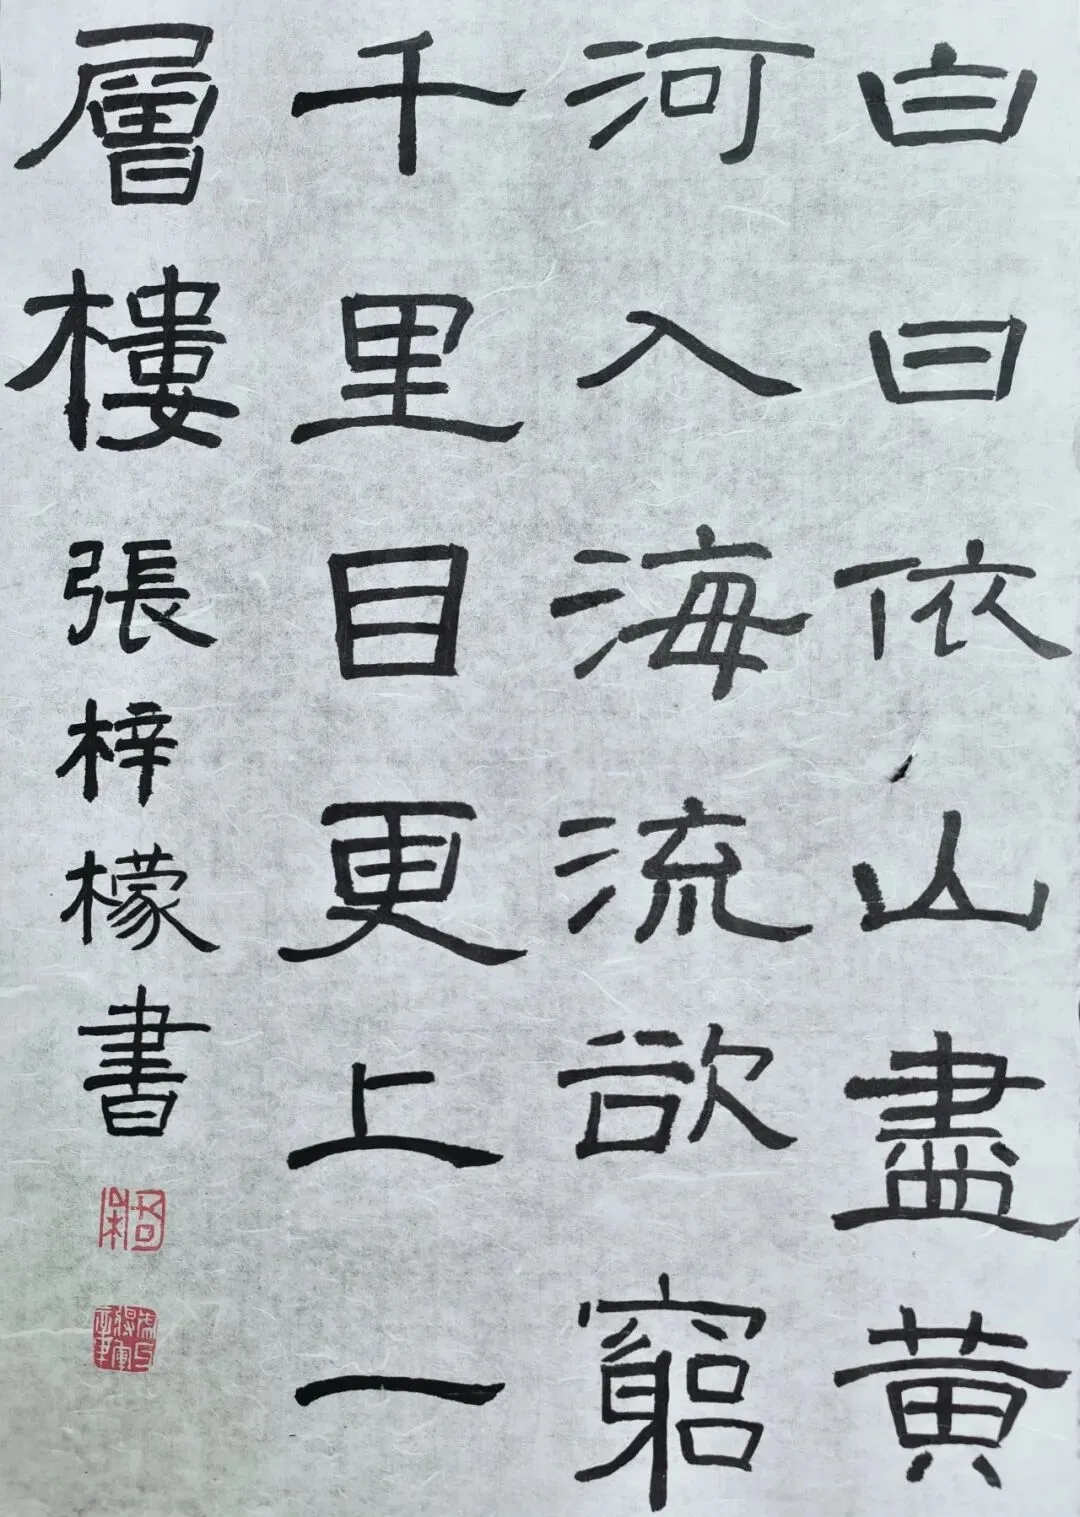 白日依山盡黃
河入海流欲窮
千里目更上一
層樓張梓檬書